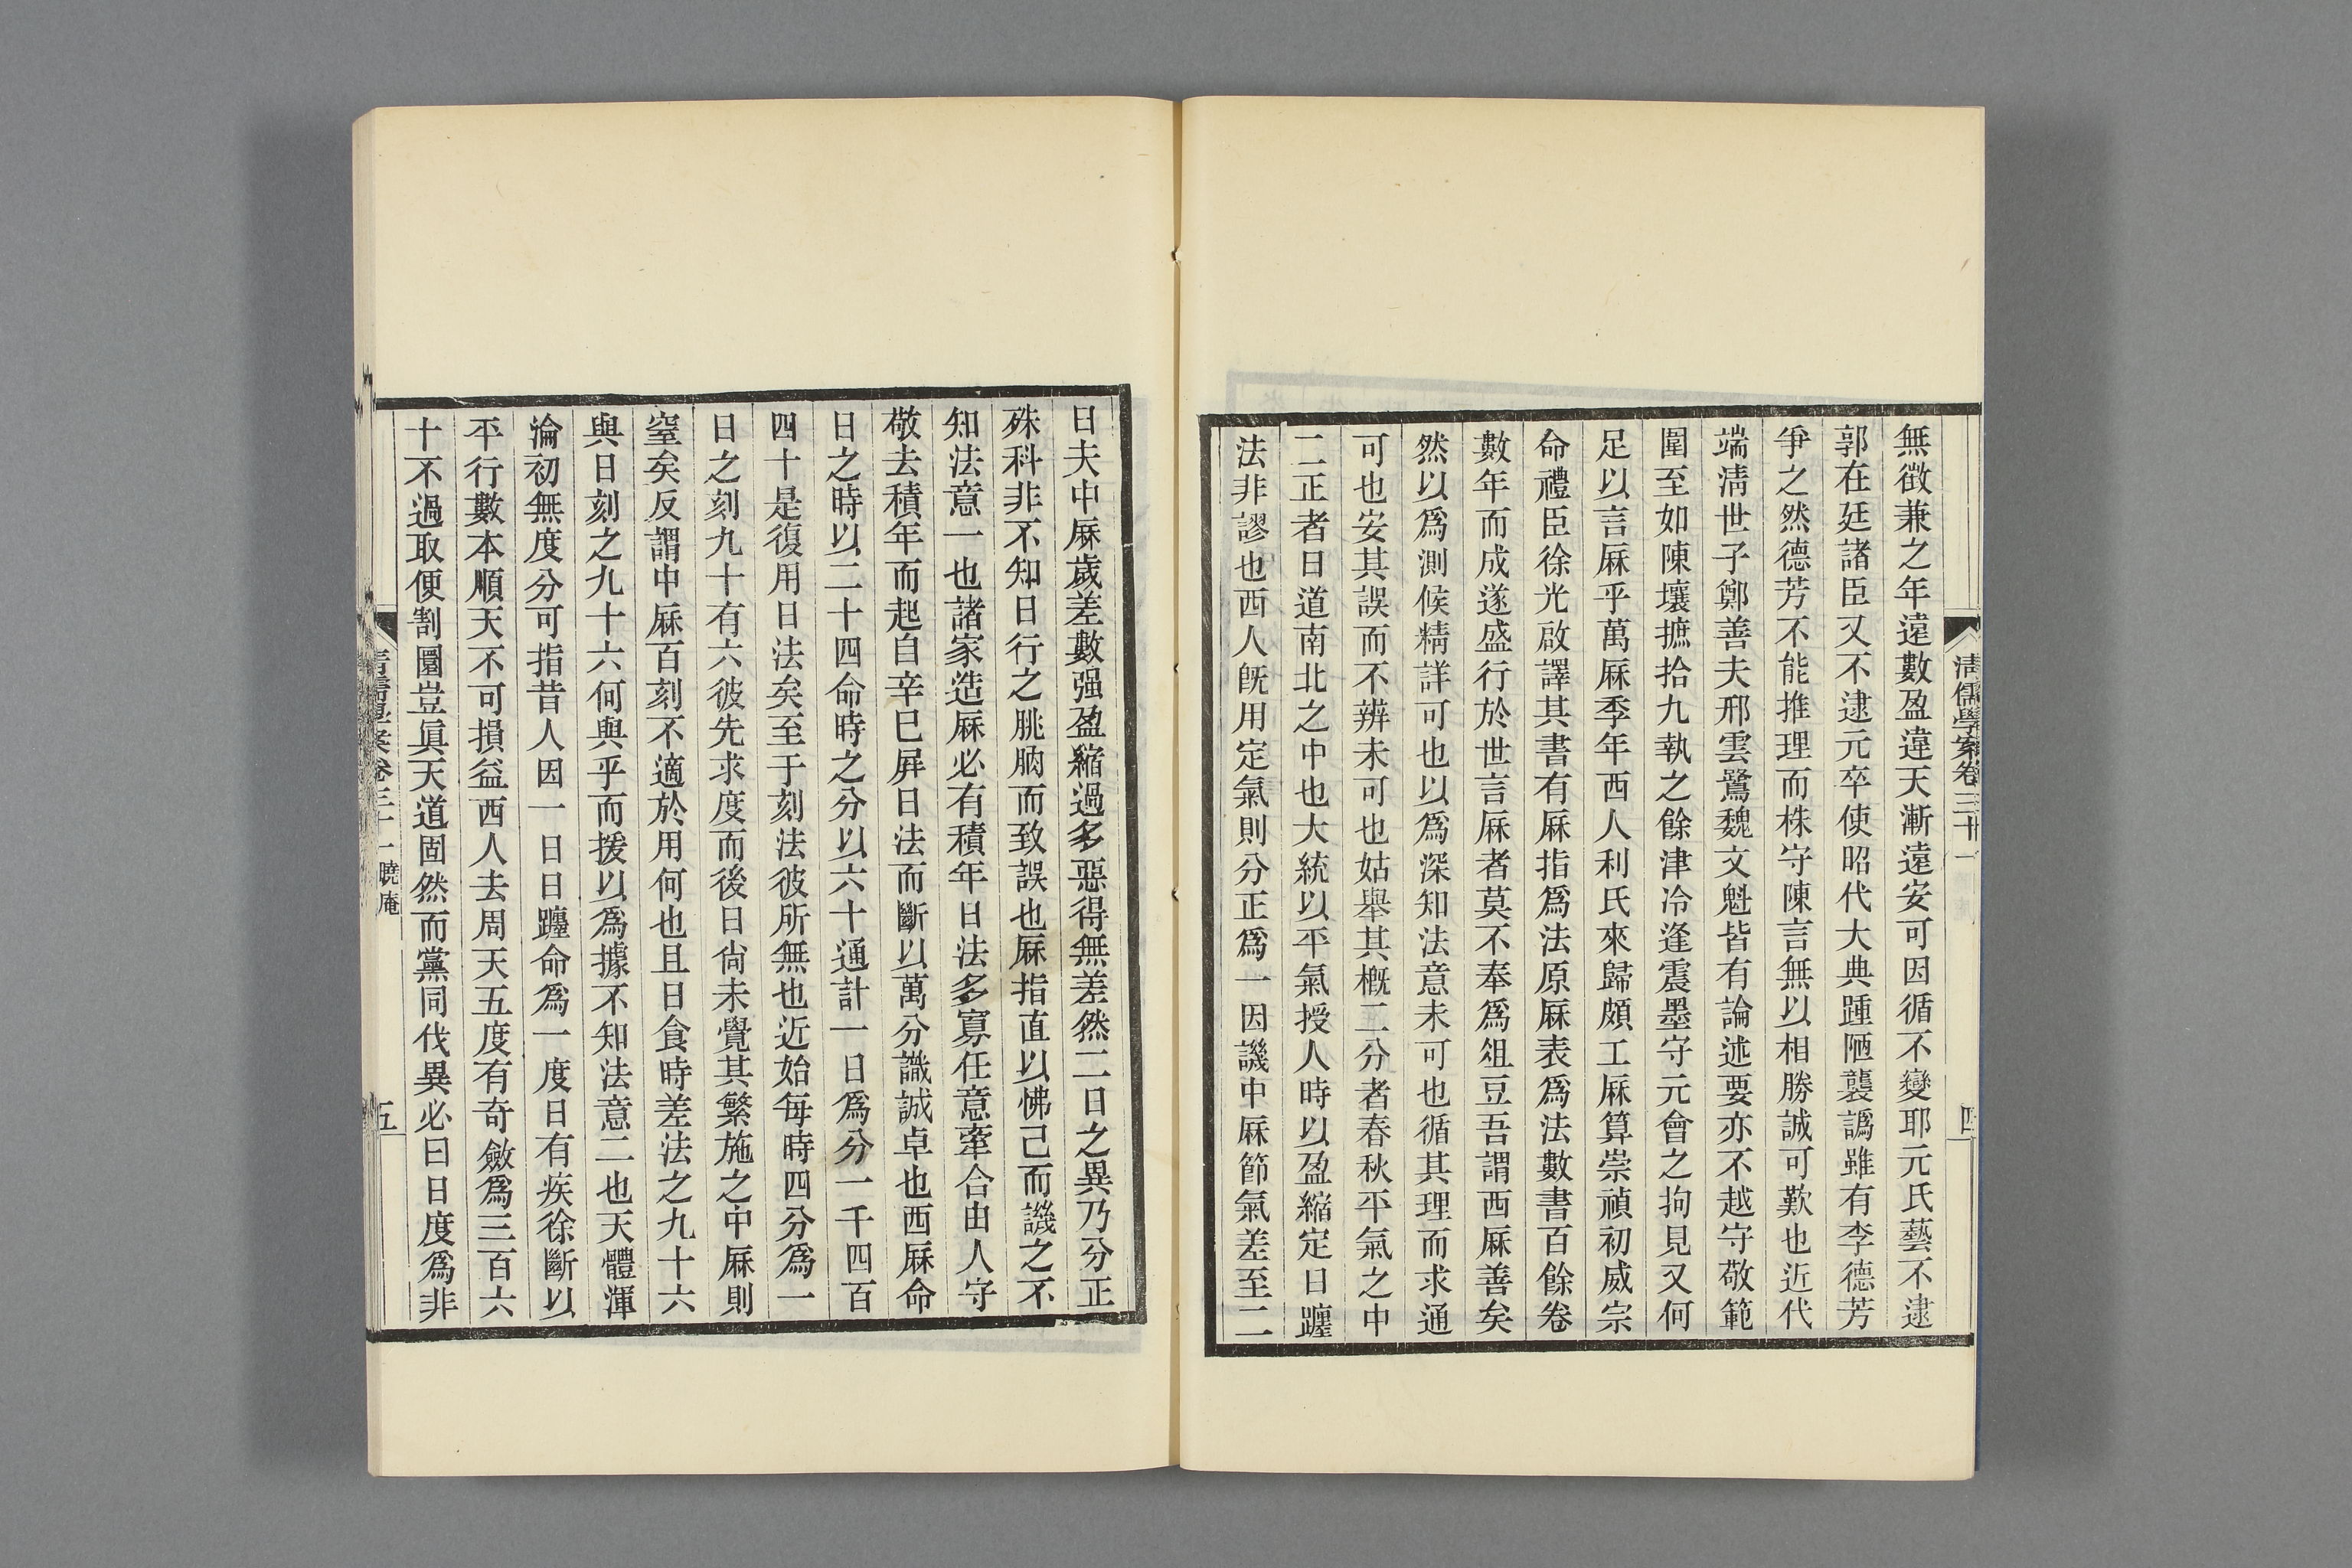 清儒學案卷三十一
四
無徵兼之年遠數盈違天漸遠安可因循不變耶元氏藝不逮
郭在廷諸臣又不逮元卒使昭代大典踵陋襲譌雖有李德芳
爭之然德芳不能推理而株守陳言無以相勝誠可歎也近代
端淸世子鄭善夫邢雲鷺魏文魁皆有論述要亦不越守敬範
圍至如陳壤摭拾九執之餘津冷逢震墨守元會之拘見又何
足以言厤乎萬厤季年西人利氏來歸頗工厤算崇禎初威宗
命禮臣徐光啟譯其書有厤指爲法原厤表爲法數書百餘卷
數年而成遂盛行於世言厤者莫不奉爲俎豆吾謂西厤善矣
然以爲測候精詳可也以爲深知法意未可也循其理而求通
可也安其誤而不辨未可也姑舉其槪二分者春秋平氣之中
二正者日道南北之中也大統以平氣授人時以盈縮定日躔
法非謬也西人旣用定氣則分正爲一因譏中厤節氣差至二
日夫中厤歲差數强盈縮過多惡得無差然二日之異乃分正
殊科非不知日行之朓朒而致誤也厤指直以怫己而譏之不
知法意一也諸家造厤必有積年日法多寡任意牽合由人守
敬去積年而起自辛巳屛日法而斷以萬分識誠卓也西厤命
日之時以二十四命時之分以六十通計一日爲分一千四百
四十是復用日法矣至于刻法彼所無也近始每時四分爲一
日之刻九十有六彼先求度而後日尙未覺其繁施之中厤則
窒矣反謂中厤百刻不適於用何也且日食時差法之九十六
與日刻之九十六何與乎而援以爲據不知法意二也天體渾
淪初無度分可指昔人因一日日躔命爲一度日有疾徐斷以
平行數本順天不可損益西人去周天五度有奇斂爲三百六
十不過取便割圜豈眞天道固然而黨同伐異必曰日度爲非
清儒學案卷三十一 曉庵
五